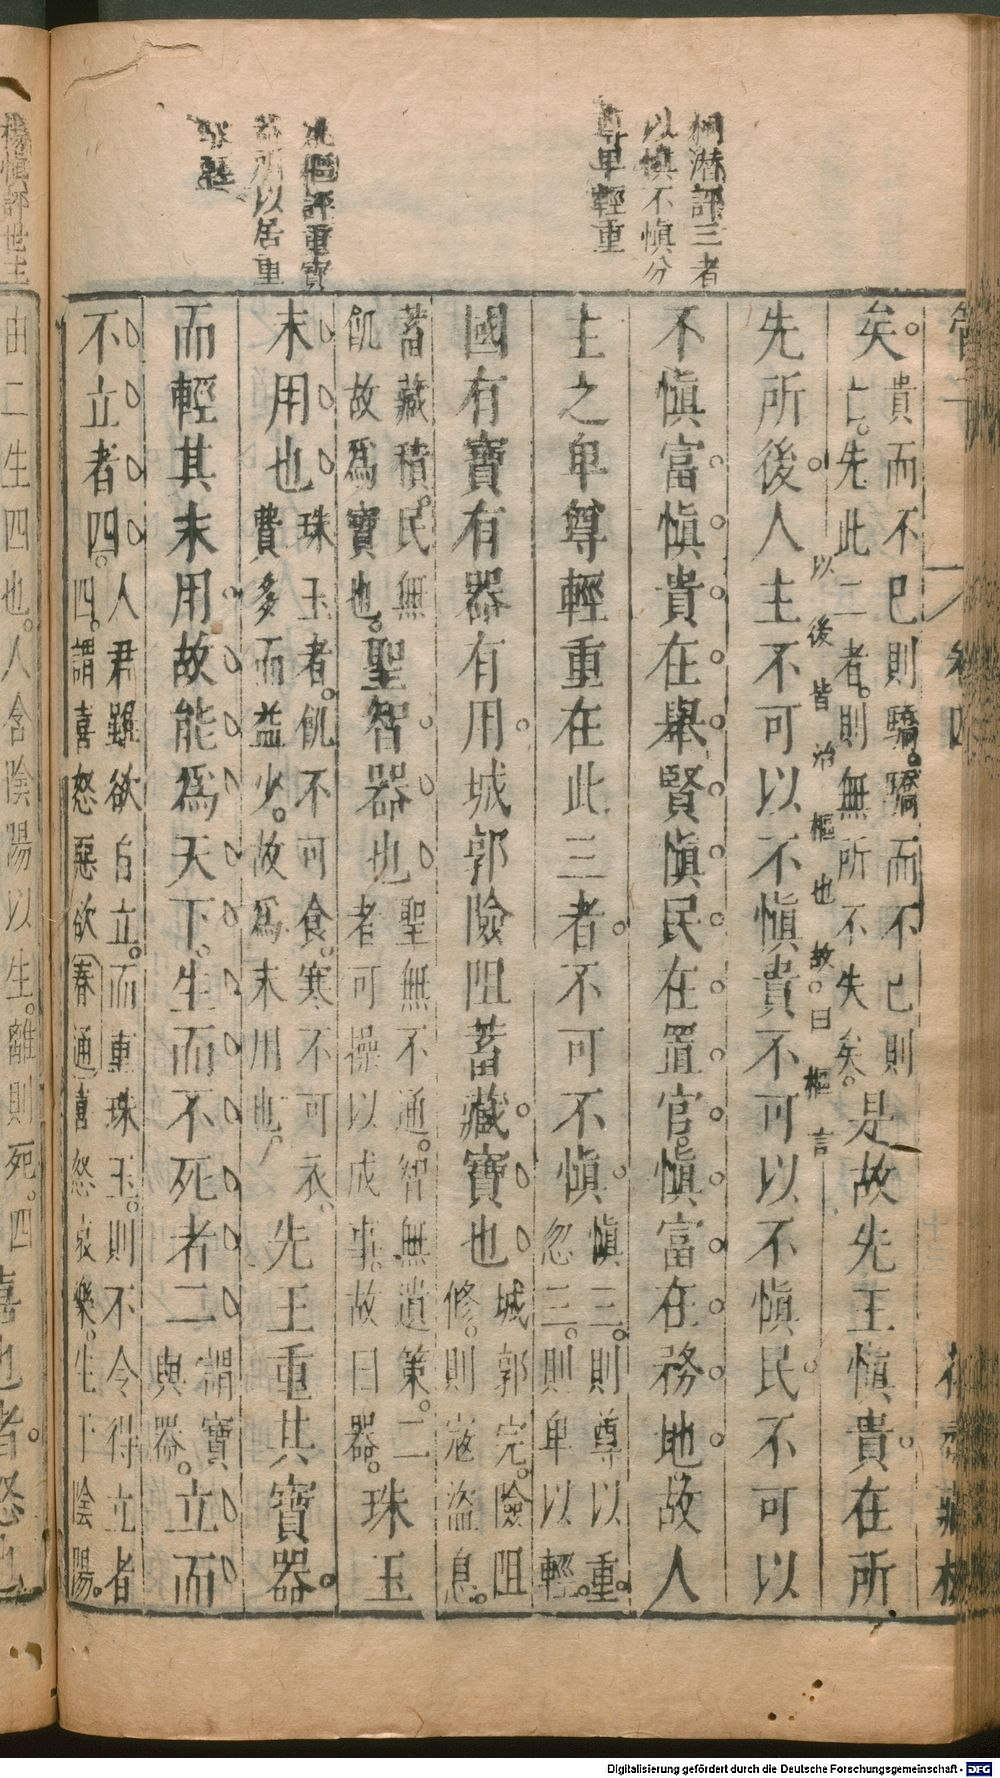 潛評三者
以慎不慎分
尊卑輕重
評重寶
器所以居重
管子
卷四
花齋藏板
矣。貴而不已則驕。驕而不已則
亡。先此二者。則無所不失矣。是故先王慎貴在所
先所後人主不可以不慎貴不可以不慎民不可以
以後皆治樞也故曰樞言
不慎富慎貴在舉賢慎民在置官慎富在務地故人
主之卑尊輕重在此三者不可不慎慎三。則尊以重。
忽三。則卑以輕。
國有寶有器有用城郭險阻蓄藏寶也城郭完。險阻
修。則寇盜息。
蓄藏積。民無
飢故爲寶也。聖智器也聖無不通。智無遺策。二
者可操以成事。故曰器。珠玉
末用也珠玉者。飢不可食。寒不可衣。
費多而益少。故爲末用也。先王重其寶器。
而輕其末用故能爲天下。生而不死者二謂寶
與器。立而
不立者四。人君雖欲自立。而重珠玉。則不令得立者
四。謂喜怒惡欲春通喜怒哀樂。生下陰陽。
楊慎評世主
由二生四也。人含陰陽以生。離則死。四喜也者怒也
Digitalisierung gefördert durch die Deutsche Forschungsgemeinschaft - DFG